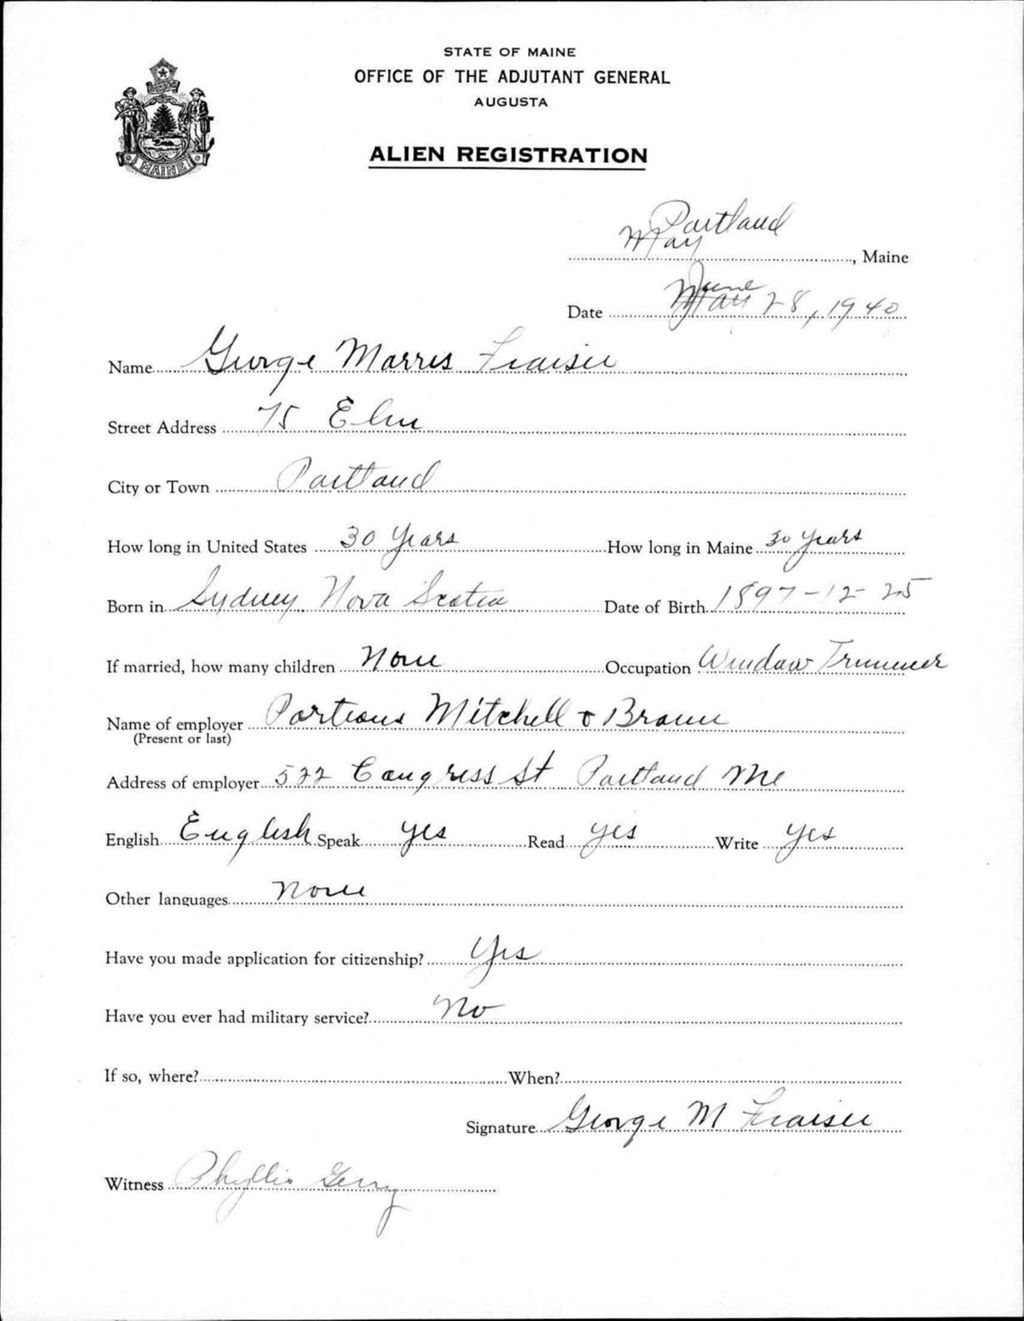 STATE OF MAINE
OFFICE OF THE ADJUTANT GENERAL
AUGUSTA
ALIEN REGISTRATION
MAINE
Portland
May, Maine
June
Date May 28, 1940
Name George Morris Fraiser
Street Address 75 Elm
City or Town Portland
How long in United States 30 Years How long in Maine 30 years
Born in Sydney Nova Scotia Date of Birth 1897-12-25
If married, how many children None Occupation Window Trimmer
Name of employer Porteous Mitchell & Braun
(Present or last)
Address of employer 522 Congress St Portland Me
English English Speak yes Read yes Write yes
Other languages None
Have you made application for citizenship? Yes
Have you ever had military service? No
If so, where? When?
Signature George M Fraiser
Witness Phyllis Gerry